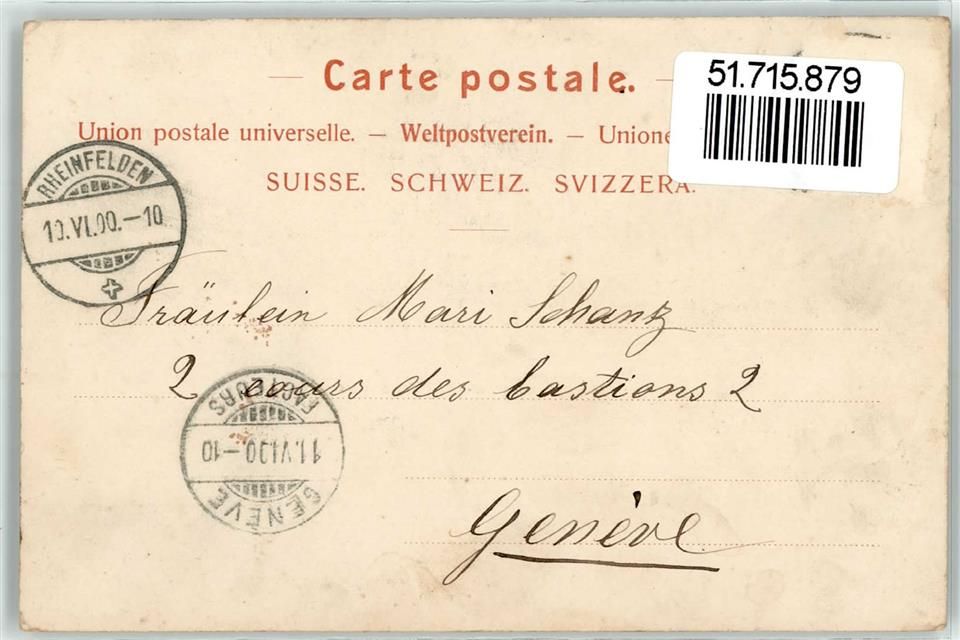 Carte postale.
51.715.879
Union postale universelle. — Weltpostverein. — Unione
SUISSE. SCHWEIZ. SVIZZERA.
RHEINFELDEN
10.VI.00.-10
Fräulein Mari Schanz
2 cours des bastions 2
GENÈVE
11.VI.00-10
FACTEURS
Genève